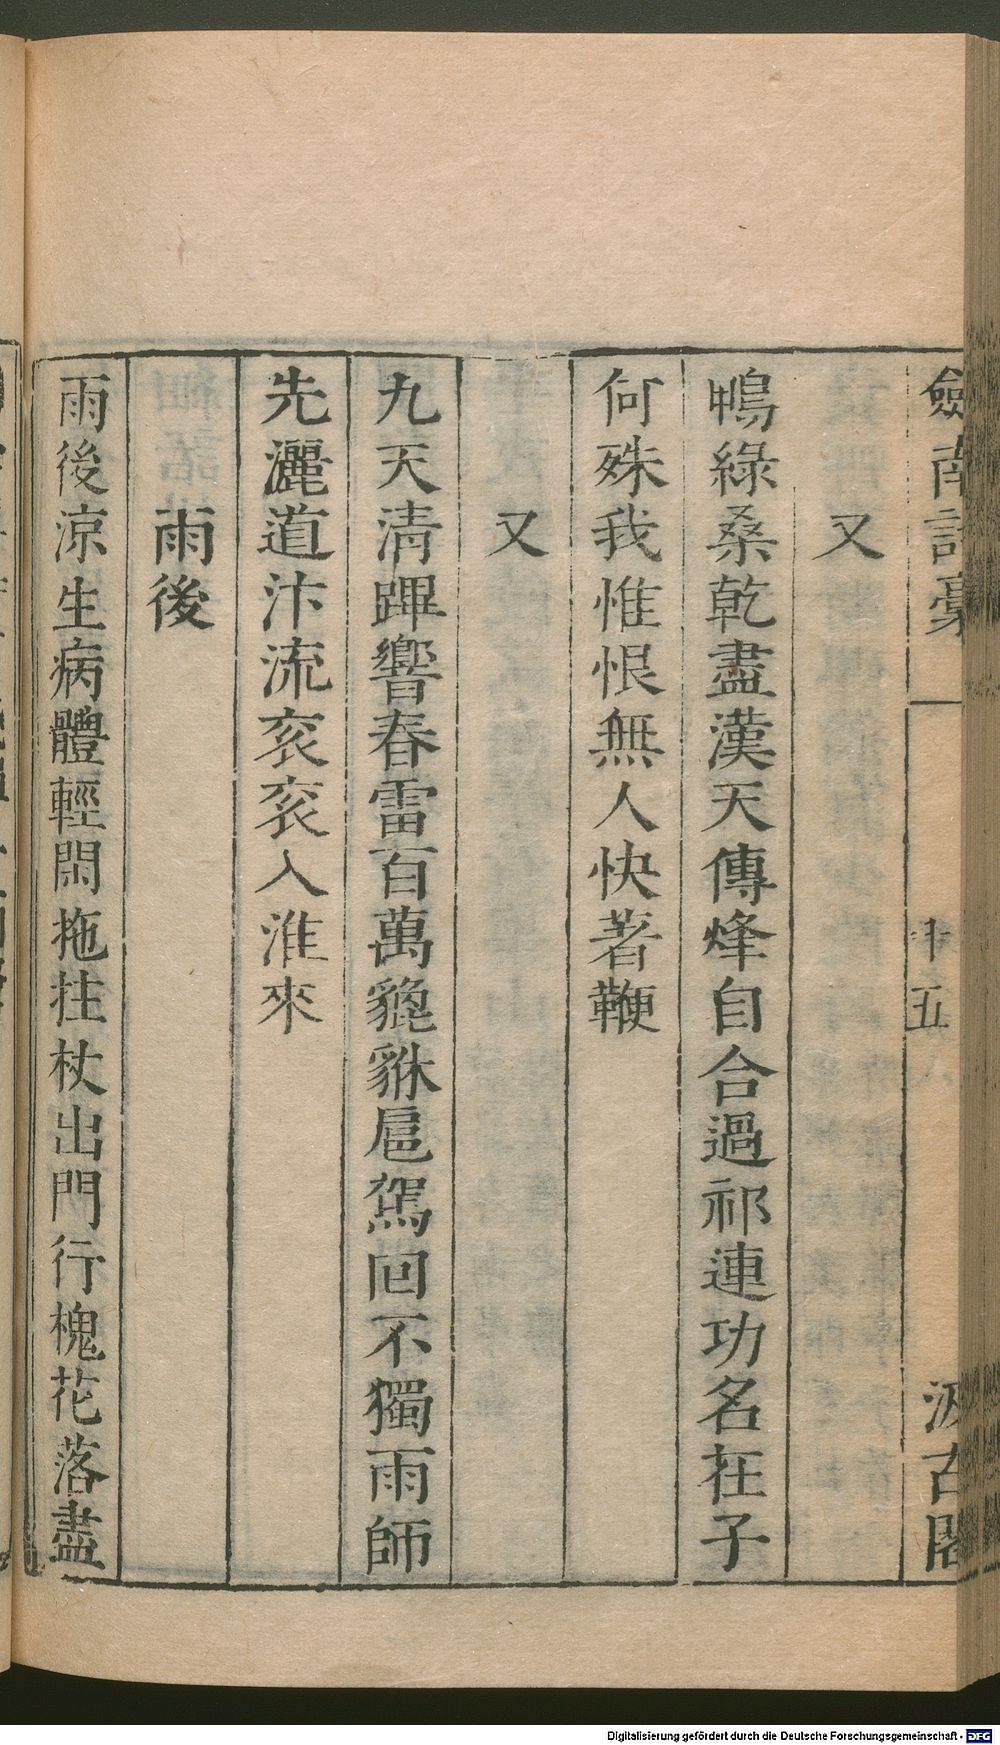 劒南詩稾
卷五
汲古閣
又
鴨綠桑乾盡漢天傳烽自合過祁連功名在子
何殊我惟恨無人快著鞭
又
九天清蹕響春雷百萬貔貅扈駕回不獨雨師
先灑道汴流衮衮入淮來
雨後
雨後涼生病體輕閑拖拄杖出門行槐花落盡
Digitalisierung gefördert durch die Deutsche Forschungsgemeinschaft - DFG